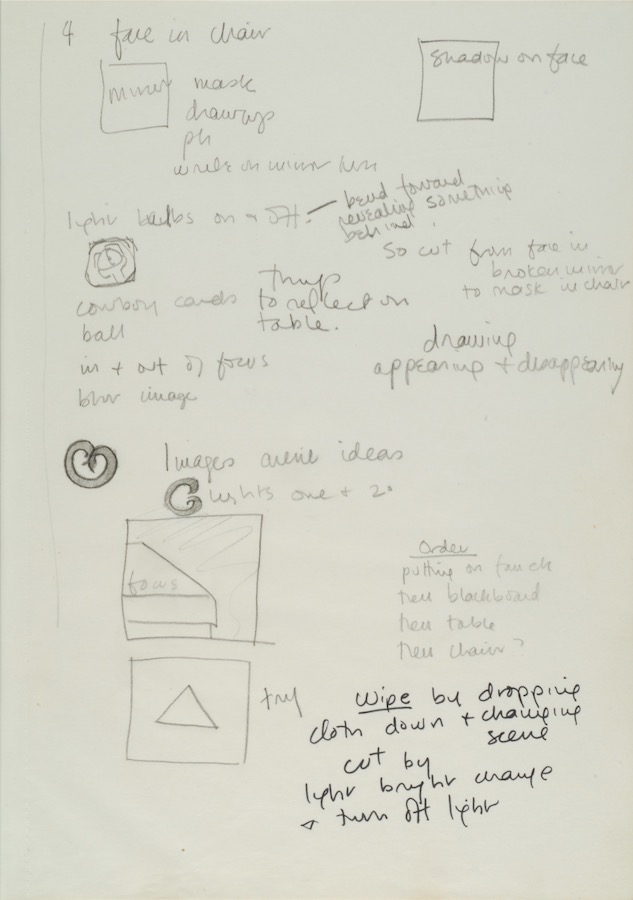 4 face in chair
mirror
mask
drawings
ph
write on mirror
shadow on face
light bulbs on + off
bend toward
revealing something
behind.
so cut from face in
broken mirror
to mask in chair
cowboy cards
ball
things
to reflect on
table.
in + out of focus
blur image
drawing
appearing + disappearing
Images ideas
lights one + 2.
focus
Order
putting on
then blackboard
then table
then chair?
try
wipe by dropping
cloth down + changing
scene
cut by
light bright change
+ turn off light